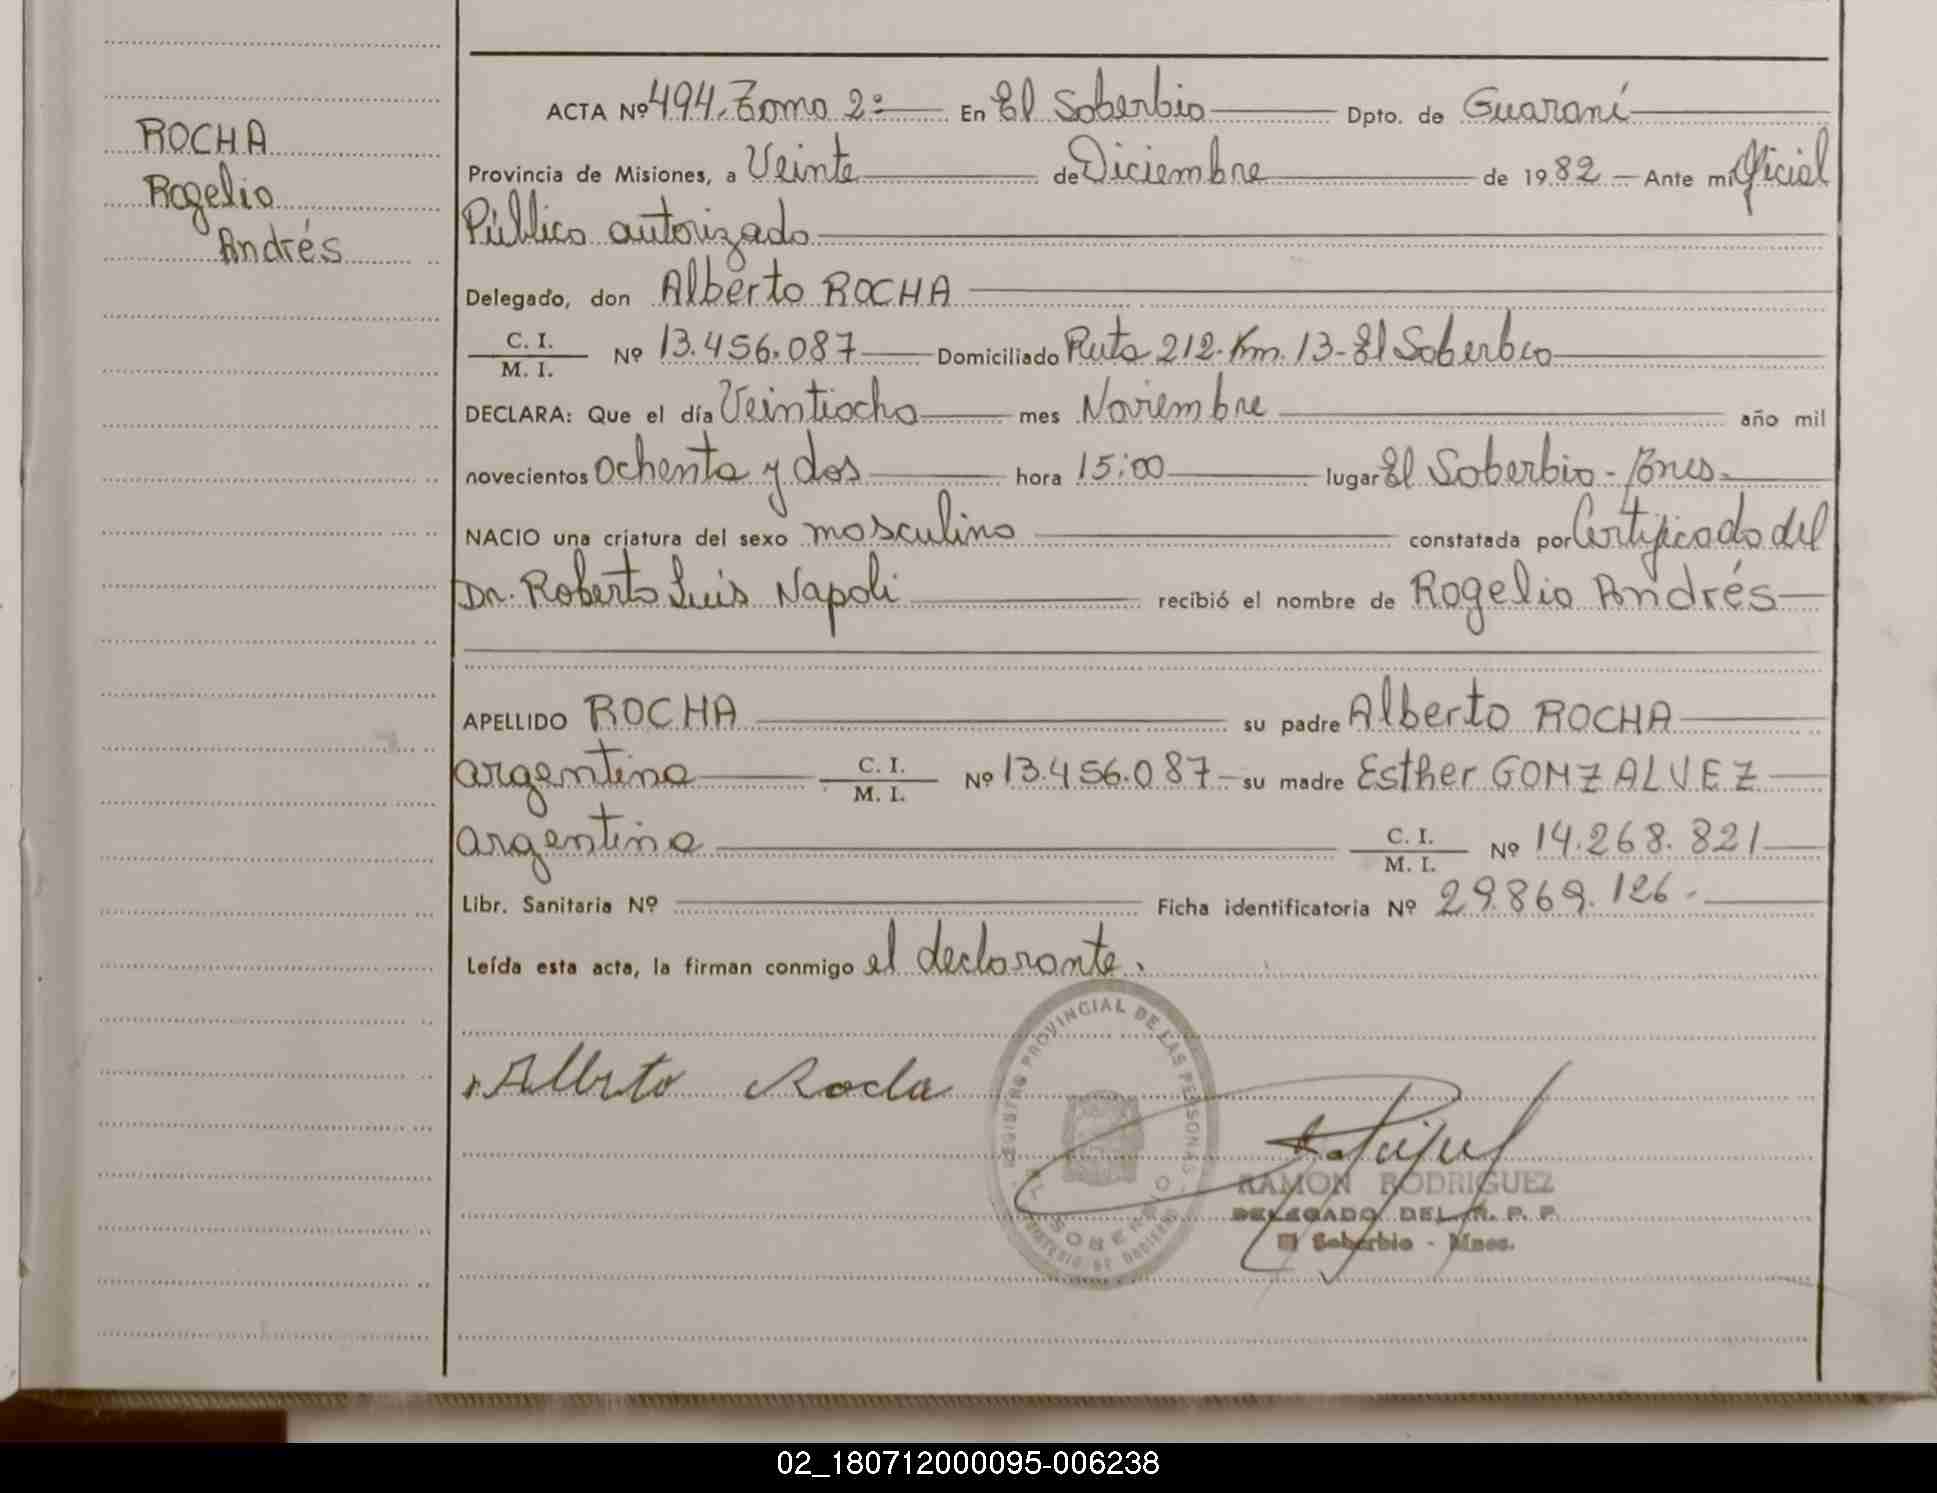 ROCHA
Rogelio
Andrés
ACTA Nº 494. Tomo 2º En El Soberbio Dpto. de Guaraní
Provincia de Misiones, a Veinte de Diciembre de 1982 Ante mi Oficial
Público autorizado
Delegado, don Alberto ROCHA
C. I. / M. I. Nº 13.456.087 Domiciliado Ruta 212. Km. 13- El Soberbio
DECLARA: Que el día Veintiocho mes Noviembre año mil
novecientos ochenta y dos hora 15:00 lugar El Soberbio -
NACIO una criatura del sexo masculino constatada por Certificado del
Dr. Roberto Luis Napoli recibió el nombre de Rogelio Andrés
APELLIDO ROCHA su padre Alberto ROCHA
argentino C. I. / M. I. Nº 13.456.087 su madre Esther GONZALVEZ
argentina C. I. / M. I. Nº 14.268.821
Libr. Sanitaria Nº Ficha identificatoria Nº 29.869.126.
Leída esta acta, la firman conmigo el declarante.
REGISTRO PROVINCIAL DE LAS PERSONAS
EL SOBERBIO
MINISTERIO DE GOBIERNO
Alberto Rocha
RAMON RODRIGUEZ
DELEGADO DEL R. P. P.
El Soberbio - Mnes.
02_180712000095-006238